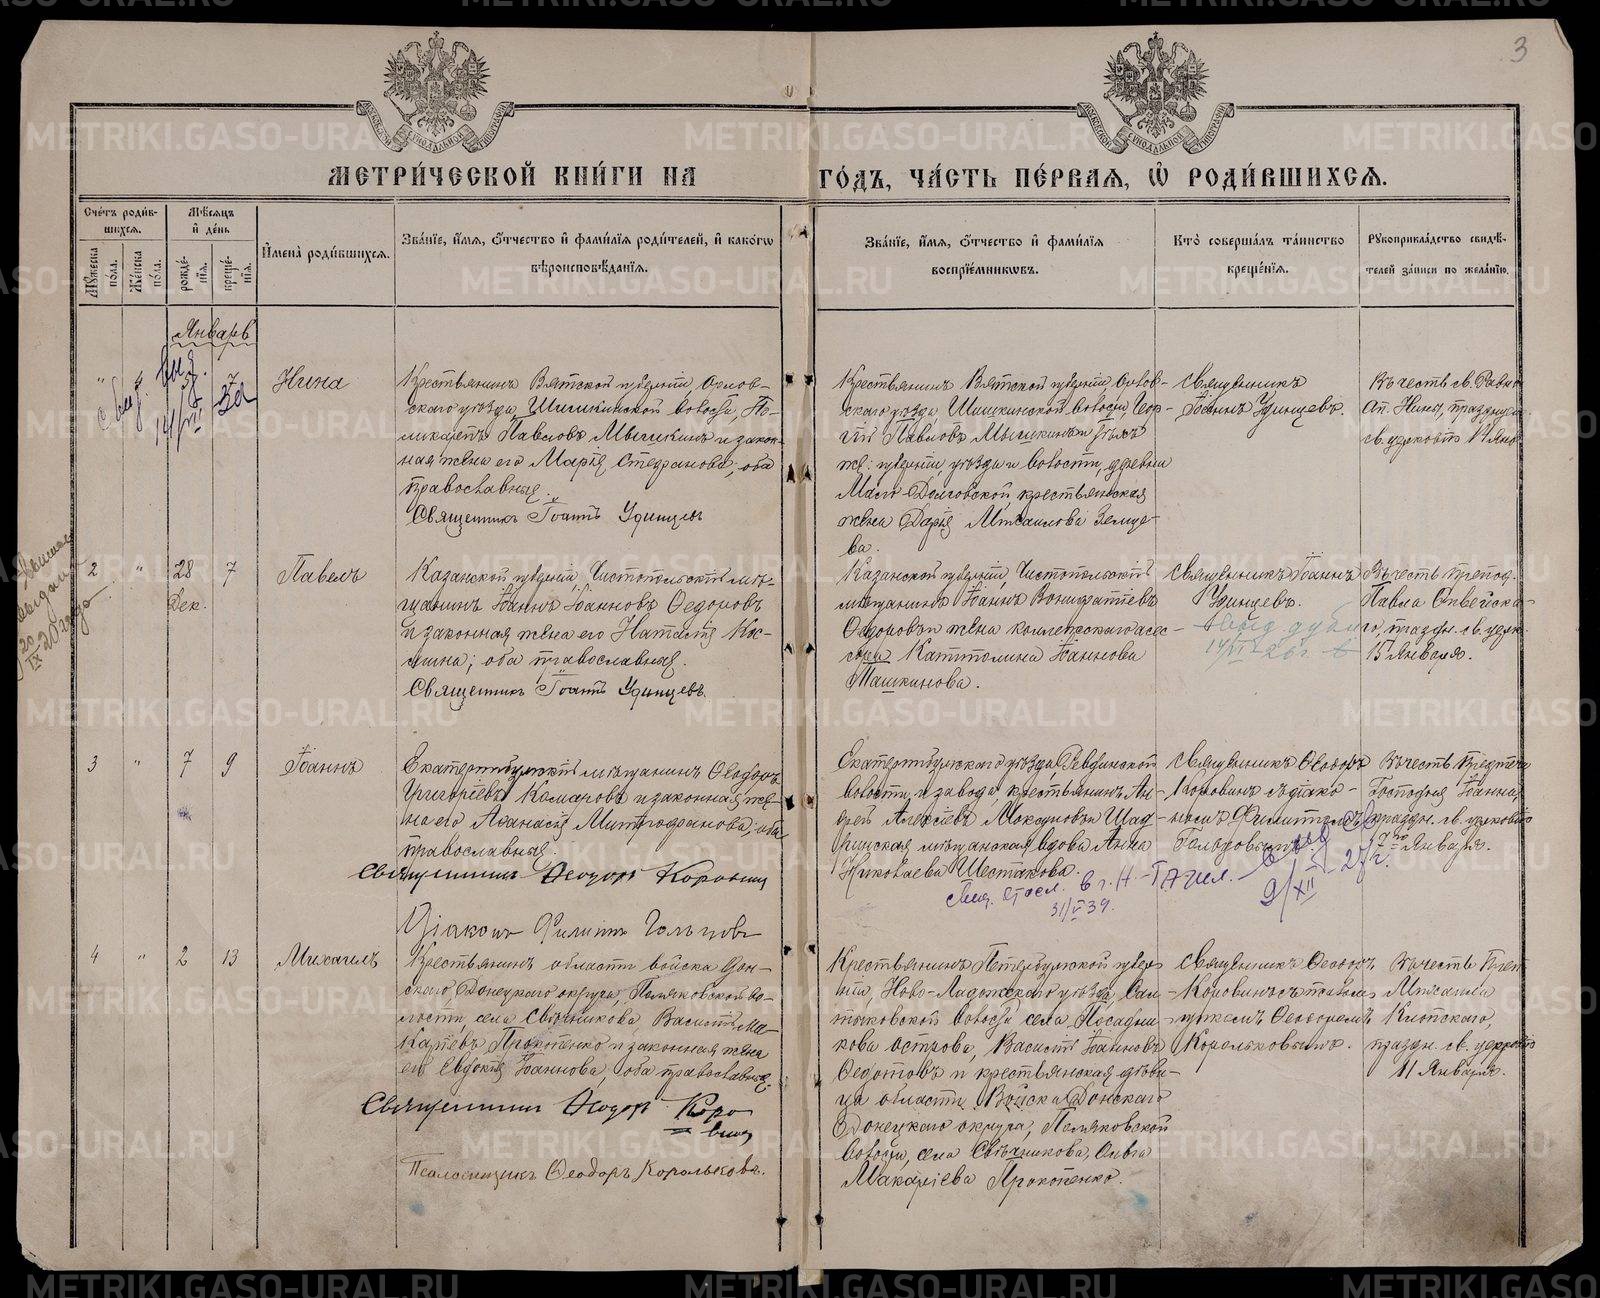 3
МЕТРИЧЕСКОЙ КНИГИ НА ГОДЪ, ЧАСТЬ ПЕРВАЯ, Ѡ РОДИВШИХСЯ.
Счетъ родившихся.
Мѹжеска пола.
Женска пола.
Мѣсяцъ и день
рожденія.
крещенія.
Имена родившихся.
Званіе, имя, отчество и фамилія родителей, и какогѡ вѣроисповѣданія.
Званіе, имя, отчество и фамилія воспріемникѡвъ.
Кто совершалъ таинство крещенія.
Рукоприкладство свидѣтелей записи по желанію.
Январь
7
Нина
Крестьянинъ Вятской губерніи, Орлов-
скаго уѣзда, Шишкинской волости, По-
ликарпъ Павловъ Мышкинъ и закон-
ная жена его Марія Стефанова; оба
православные.
Священникъ Іоаннъ Удинцевъ
Крестьянинъ Вятской губерніи, Орлов-
скаго уѣзда Шишкинской волости, Геор-
гій Павловъ Мышкинъ и тѣхъ
же: губерніи уѣзда и волости, деревни
Мало-Долговской крестьянская
жена Дарія Михаилова Земце-
ва.
Священникъ
Іоаннъ Удинцевъ.
Въ честь св. Равно
Ап. Нины, празднуем.
св. церковію 14 Янв.
2 " 28 7
Дек.
Павелъ
Казанской губерніи, Чистопольскій мѣ-
щанинъ Іоаннъ Іоанновъ Ѳедоровъ
и законная жена его Наталія Кос-
мина; оба православные.
Священникъ Іоаннъ Удинцевъ.
Казанской губерніи, Чистопольскій
мѣщанинъ Іоаннъ Вонифатіевъ
Ѳедоровъ и жена коллежскаго асес-
сора Капитолина Іоаннова
Машканова.
Священникъ Іоаннъ
Удинцевъ.
Въ честь препод.
Павла Ѳивейска-
го, праздн. св. церк.
15 Января.
3 " 7 9
Іоаннъ
Екатеринбургскій мѣщанинъ Ѳеодоръ
Григоріевъ Комаровъ и законная же-
на его Аѳанасія Митрофанова; оба
православные.
Священникъ Ѳеодоръ Коровинъ
Діаконъ Филиппъ Гольцовъ
Екатеринбургскаго уѣзда, Ревдинской
волости и завода, крестьянинъ Ан-
дрей Алексіевъ Мокроусовъ и Шад-
ринская мѣщанская вдова Анна
Николаева Шестакова.
Священникъ Ѳеодоръ
Коровинъ съ діако-
номъ Филиппомъ
Гольцовымъ.
Въ честь Предтечи
Господня Іоанна,
праздн. св. церковію
7го Января.
в г. Н-Тагил.
31/V 39.
9/XII 27 г.
4 " 2 13
Михаилъ
Крестьянинъ области войска Дон-
скаго, Донецкаго округа, Поляковской во-
лости села Свѣчникова, Василій Ма-
каріевъ Прокопенко и законная жена
его Евдокія Іоаннова, оба православные.
Священникъ Ѳеодоръ Коро
винъ
Псаломщикъ Ѳеодоръ Корольковъ.
Крестьянинъ Петербургской губер-
ніи, Ново-Ладожскаго уѣзда, Сал-
тыковской волости села Посадни-
кова острова, Василій Іоанновъ
Ѳедотовъ и крестьянская дѣви-
ца области Войска Донскаго
Донецкаго округа, Поляковской
волости, села Свѣчникова, Ольга
Макаріева Прокопенко.
Священникъ Ѳеодоръ
Коровинъ съ псалом-
щикомъ Ѳеодоромъ
Корольковымъ.
Въ честь Преп.
Михаила
Клопскаго,
праздн. св. церковію
11 Января.
METRIKI.GASO-URAL.RU